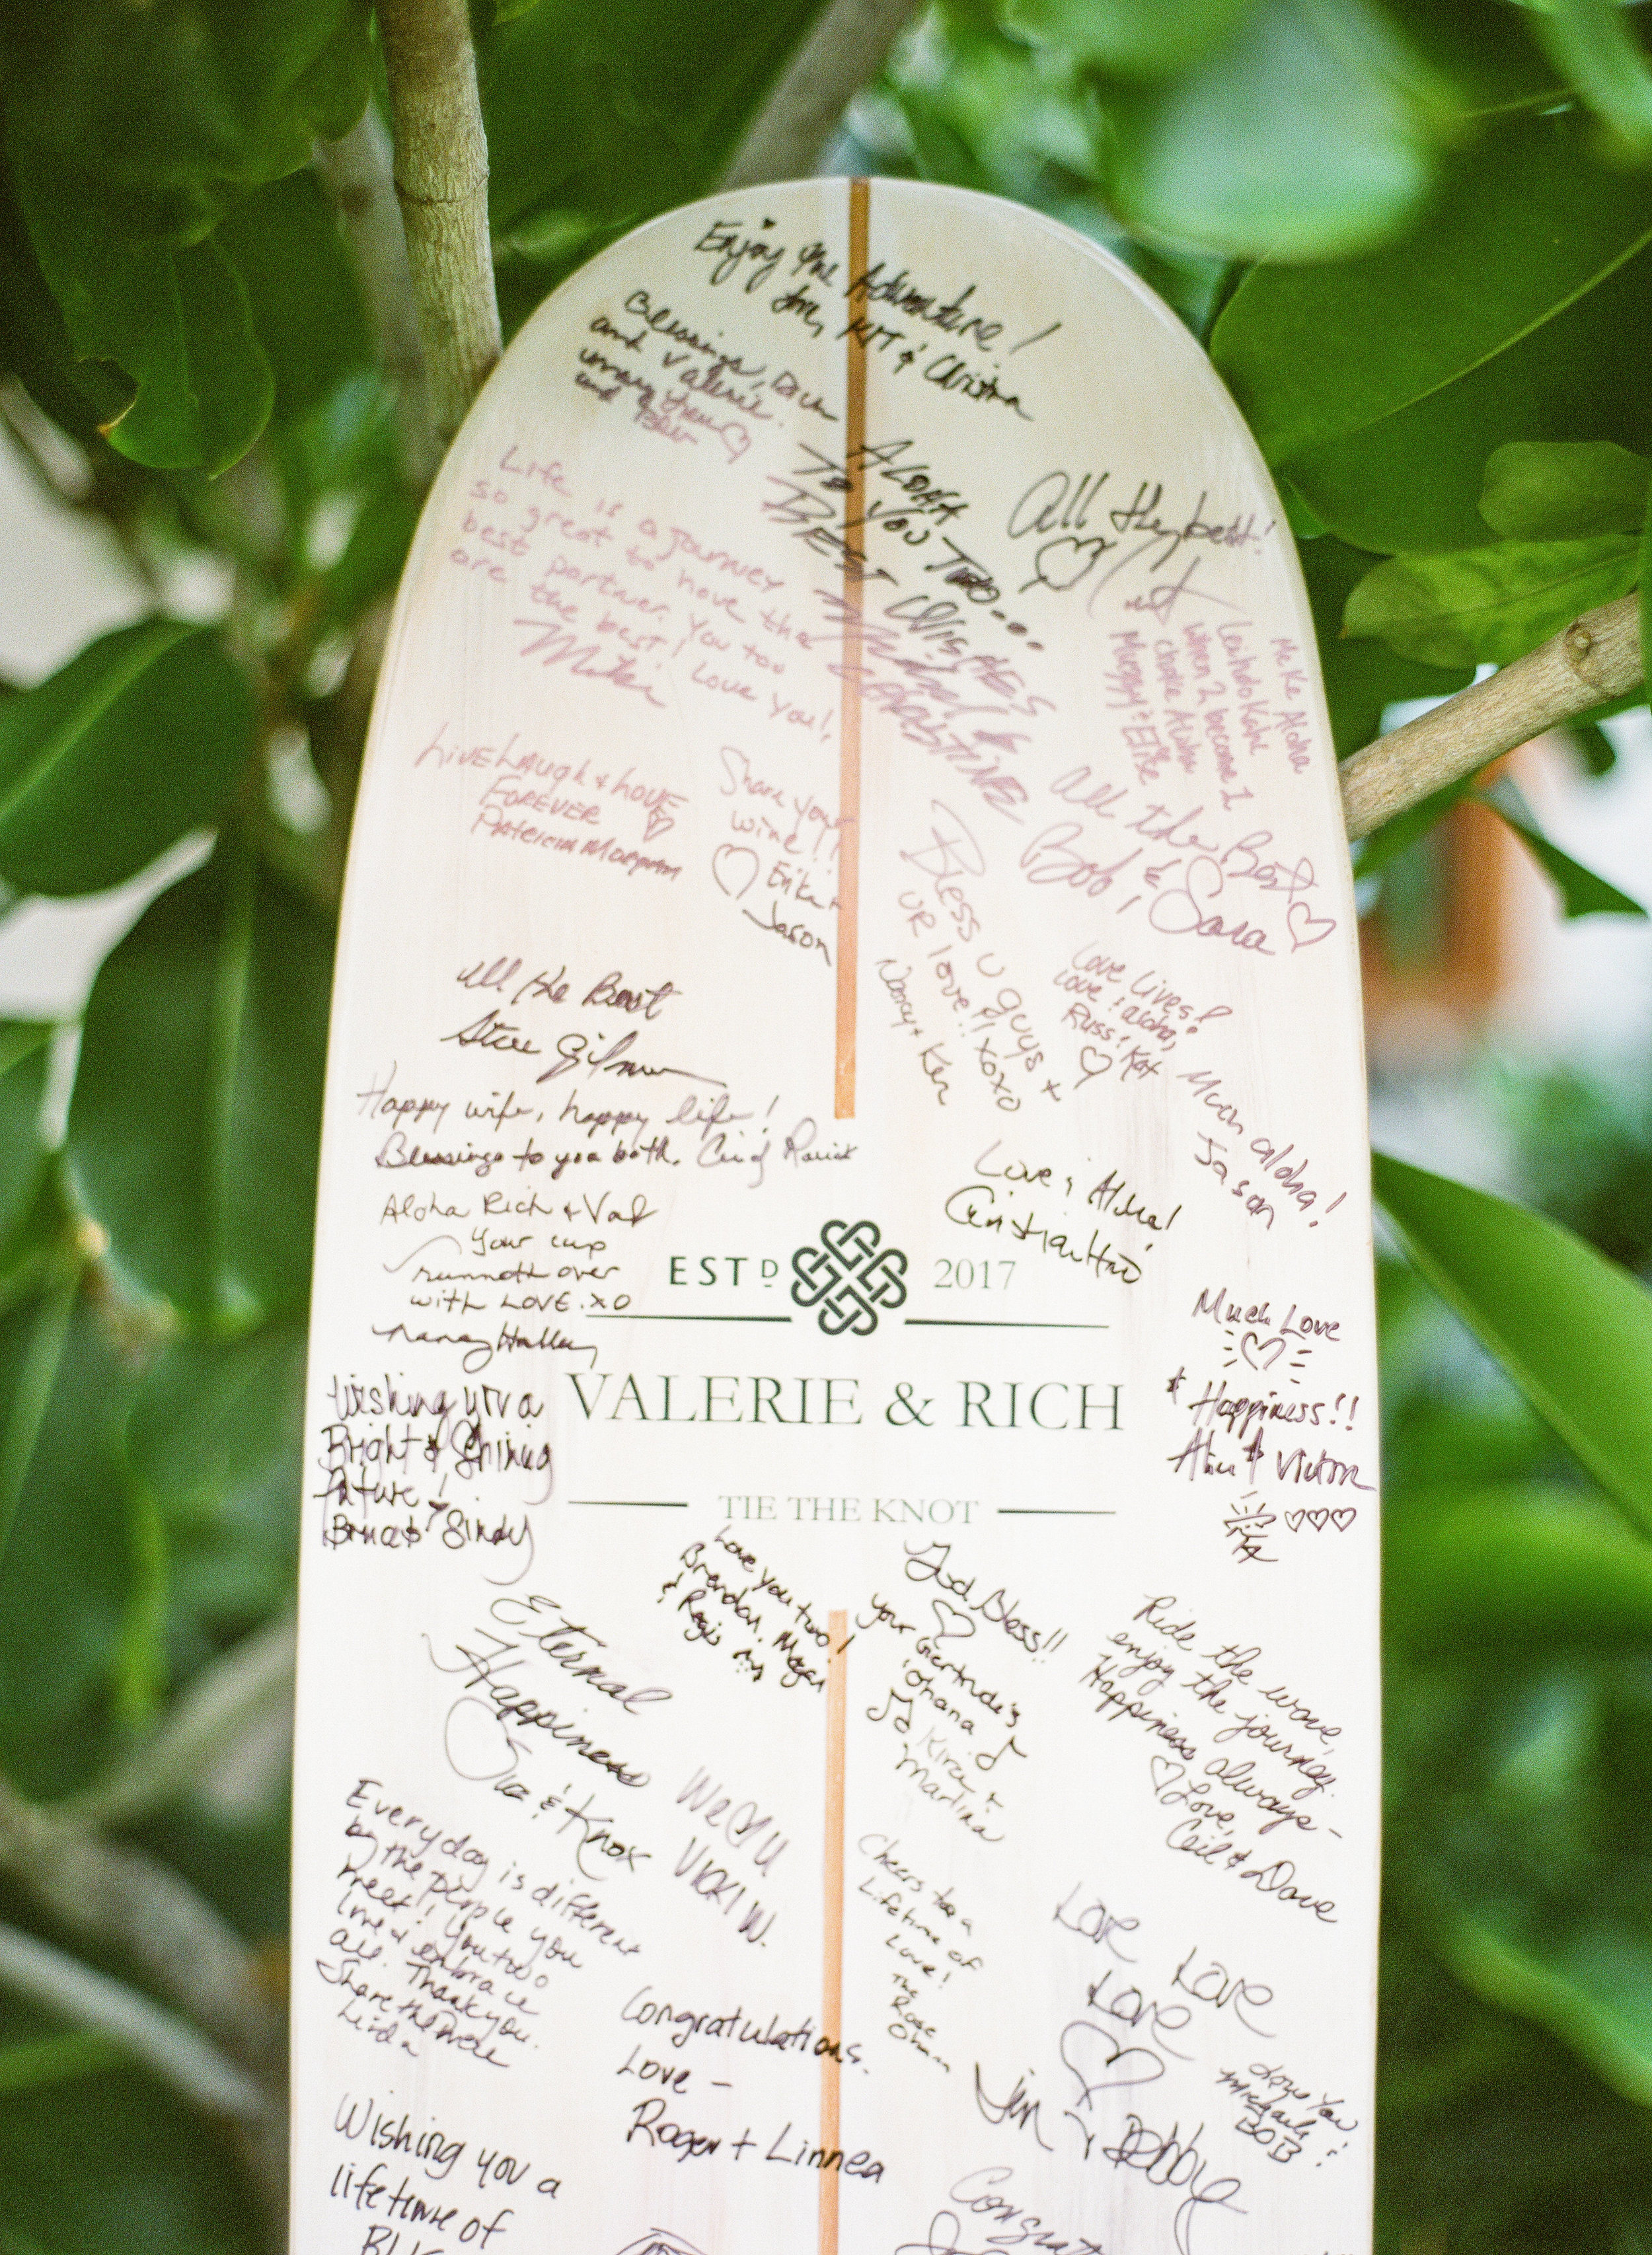 Enjoy the Adventure!
& Christina
Blessings,
and Valerie.
ALOHA
TO YOU TWO...
BEST WISHES
All the best!
Life is a journey
so great to have the
best partner. You too
are the best! Love you!
Me Ke Aloha
when 2 become 1
Live Laugh + LOVE
FOREVER
Patricia
Share your
wine!!
Erika +
Jason
All the Best
Bob, & Sara
Bless U guys +
UR love!! xoxo
Nancy + Ken
Love Lives!
Love & aloha,
Russ & Kat
Much aloha!
Jason
All the Best
Steve
Happy wife, happy life!
Blessings to you both.
Love & Aloha!
Aloha Rich + Val
Your cup
runneth over
with LOVE. XO
Nancy
ESTD 2017
VALERIE & RICH
TIE THE KNOT
Much Love
+ Happiness!!
& Victor
Wishing you a
Bright & Shining
future!
& Sindy
Love you two!
Brendan, Megan
& Regis
God Bless!!
your Gertrude's
'ohana
Kirk &
Martina
Ride the wave,
enjoy the journey.
Happiness always -
Love,
Ceil & Dave
Eternal
Happiness
Sue & Knox
We ♡ U
VICKI W.
Everyday is different
by the people you
meet! You two
love & embrace
all. Thank you.
Share the
Linda
Cheers to a
Lifetime of
Love!
The
Rose
Love
Love
Love
Jim & Debby
Love You
BOB
Congratulations.
Love -
Roger + Linnea
Wishing you a
lifetime of